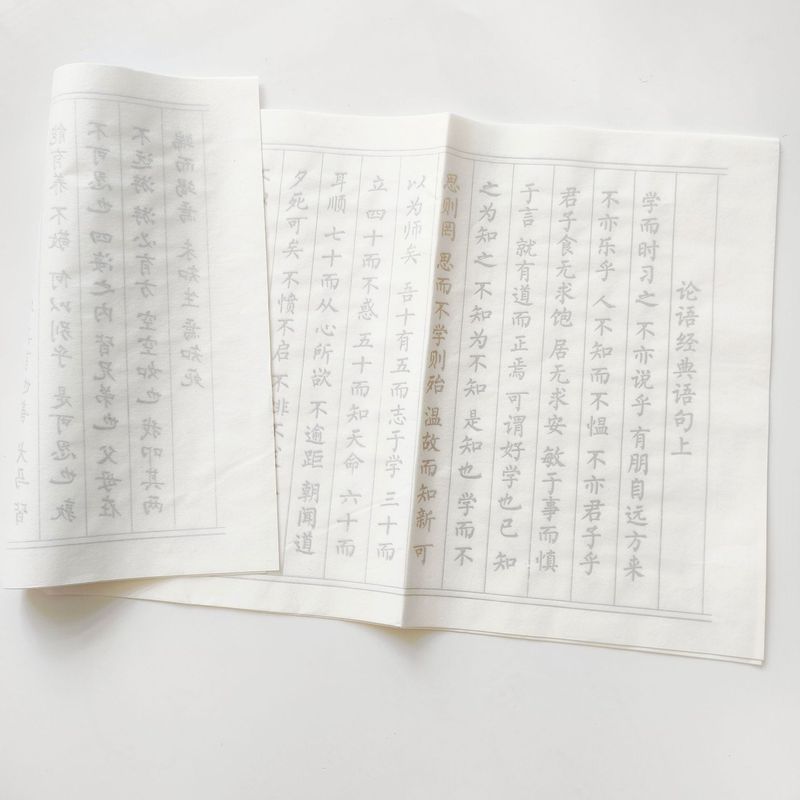 论语经典语句上
学而时习之 不亦说乎 有朋自远方来
不亦乐乎 人不知而不愠 不亦君子乎
君子食无求饱 居无求安 敏于事而慎
于言 就有道而正焉 可谓好学也已 知
之为知之 不知为不知 是知也 学而不
思则罔 思而不学则殆 温故而知新 可
以为师矣 吾十有五而志于学 三十而
立 四十而不惑 五十而知天命 六十而
耳顺 七十而从心所欲 不逾距 朝闻道
夕死可矣 不愤不启 不悱不
犬马 皆
能有养 不敬 何以别乎 是可忍也 孰
不可忍也 四海之内 皆兄弟也 父母在
不远游 游必有方 空空如也 我叩其两
端而竭焉 未知生 焉知死